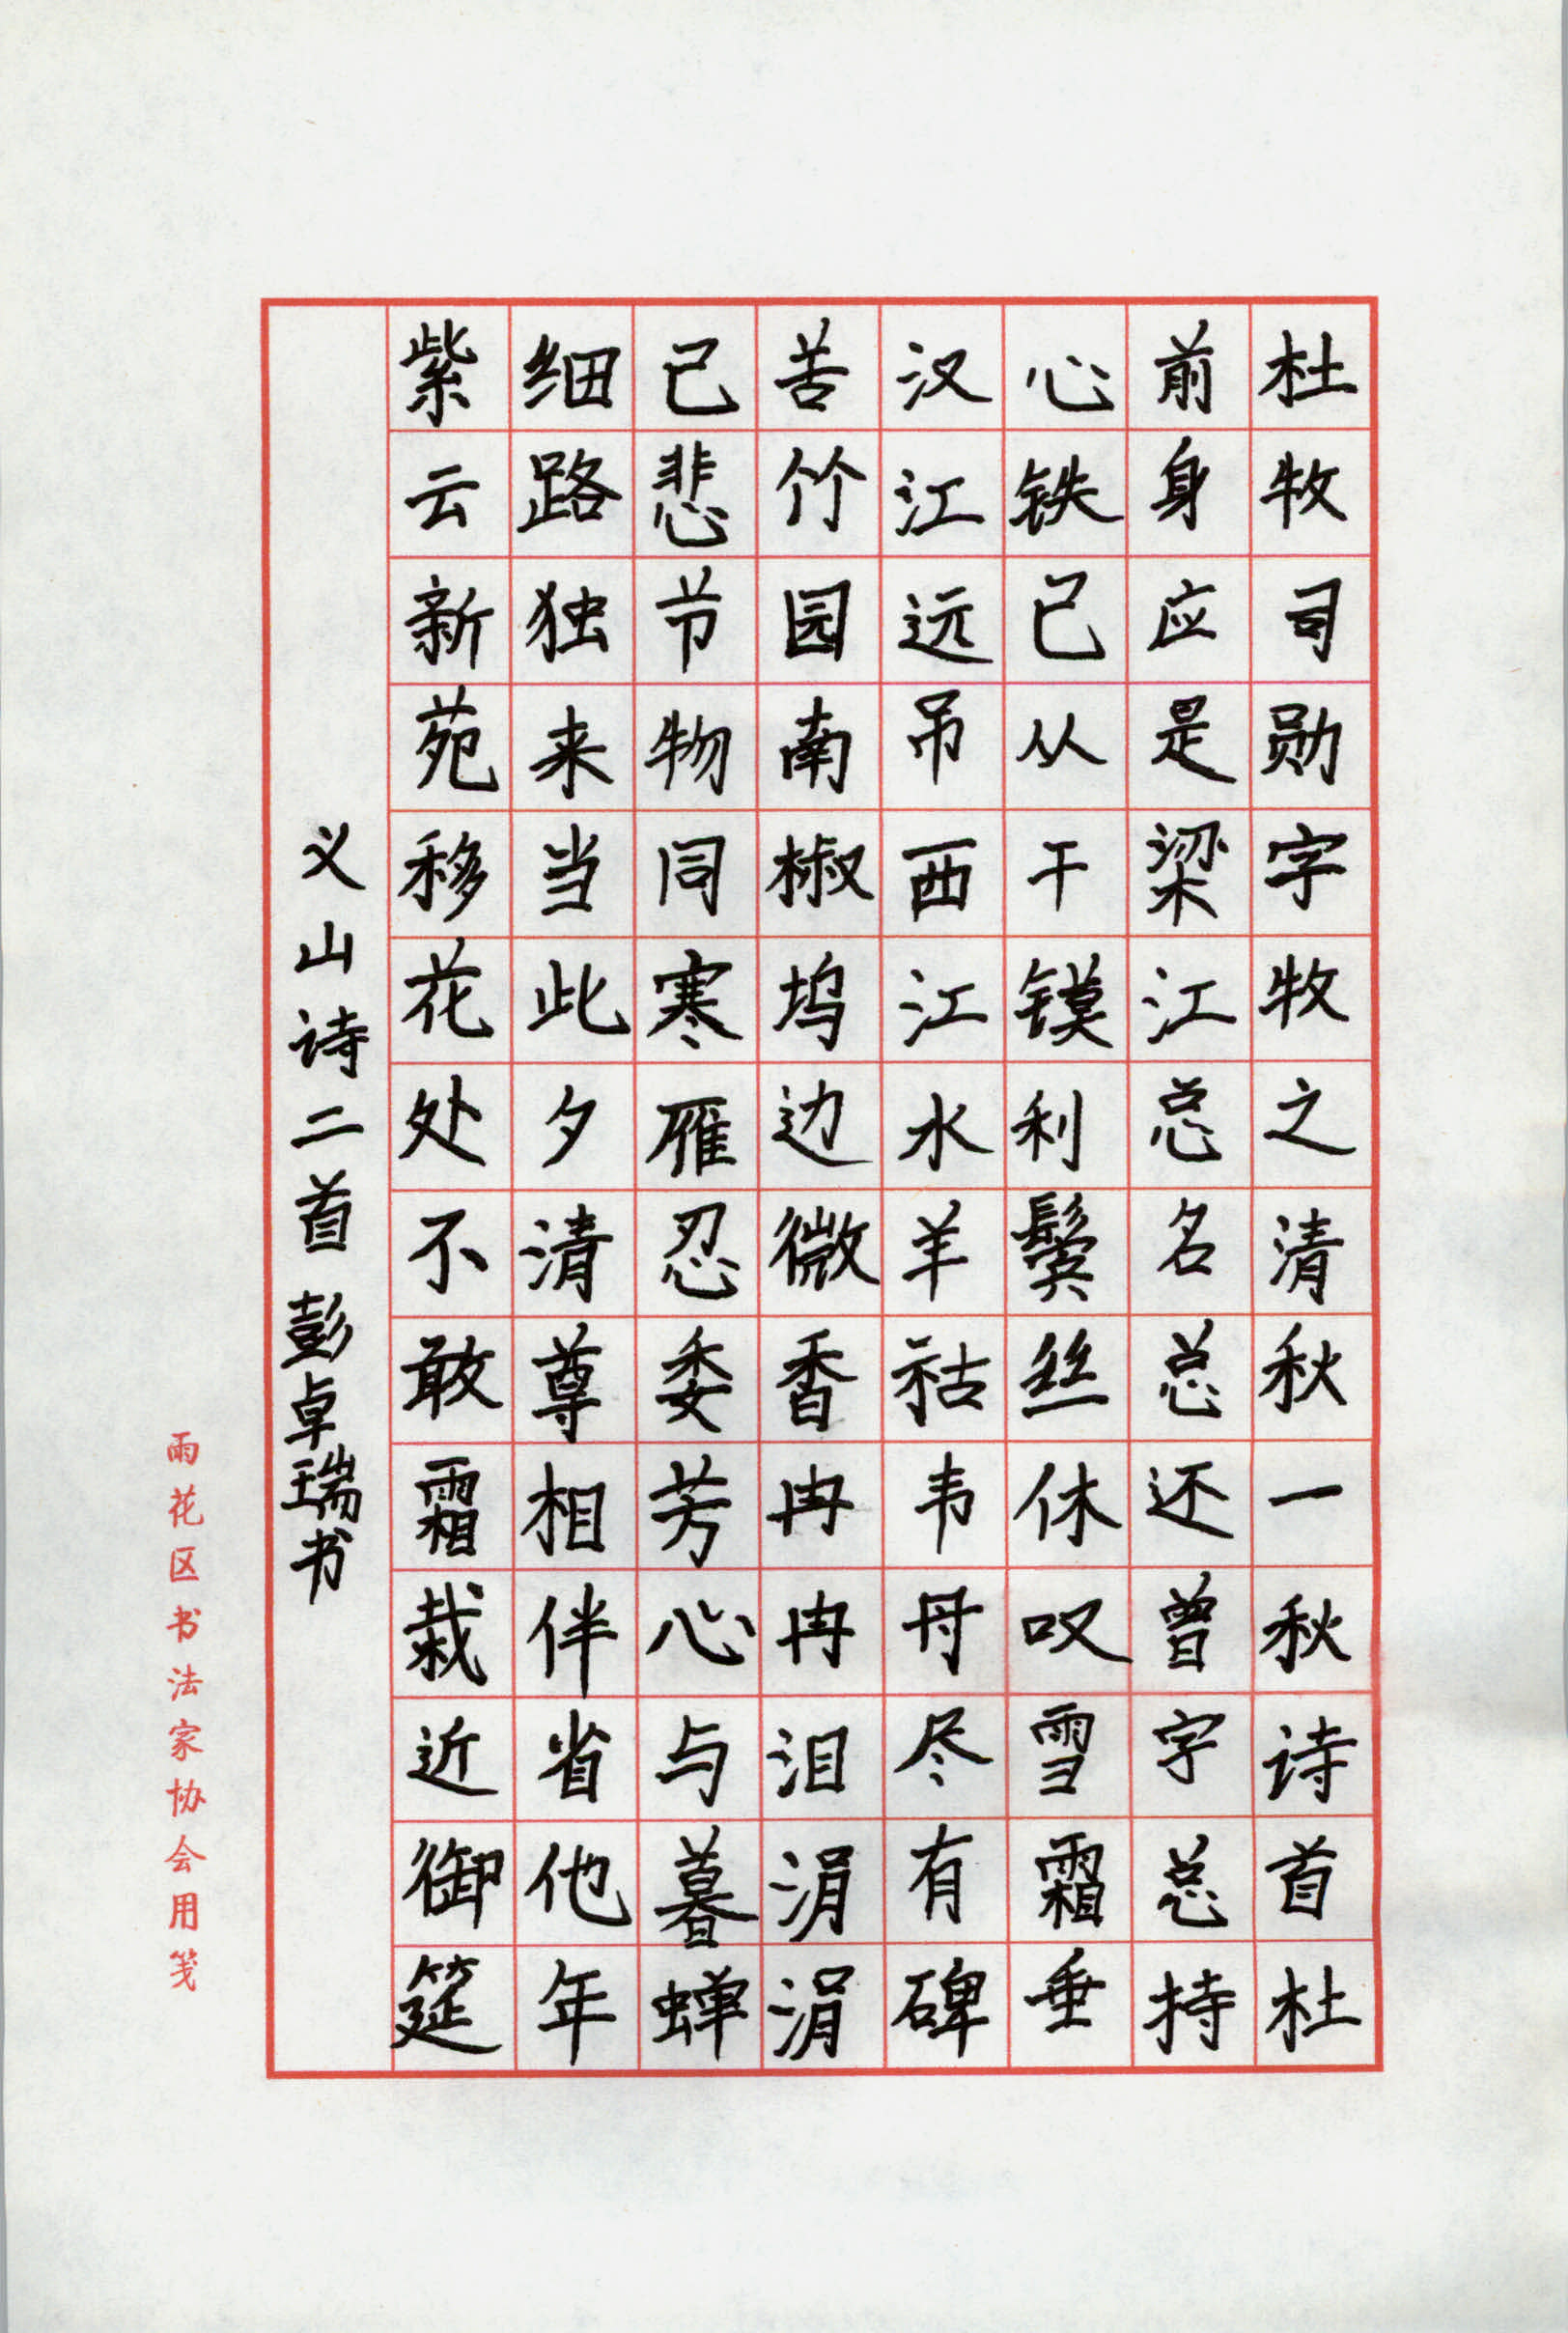 杜牧司勋字牧之清秋一秋诗首杜
前身应是梁江总名总还曾字总持
心铁已从干镆利鬓丝休叹雪霜垂
汉江远吊西江水羊祜韦丹尽有碑
苦竹园南椒坞边微香冉冉泪涓涓
已悲节物同寒雁忍委芳心与暮蝉
细路独来当此夕清尊相伴省他年
紫云新苑移花处不敢霜栽近御筵
义山诗二首 彭卓瑞书
雨花区书法家协会用笺